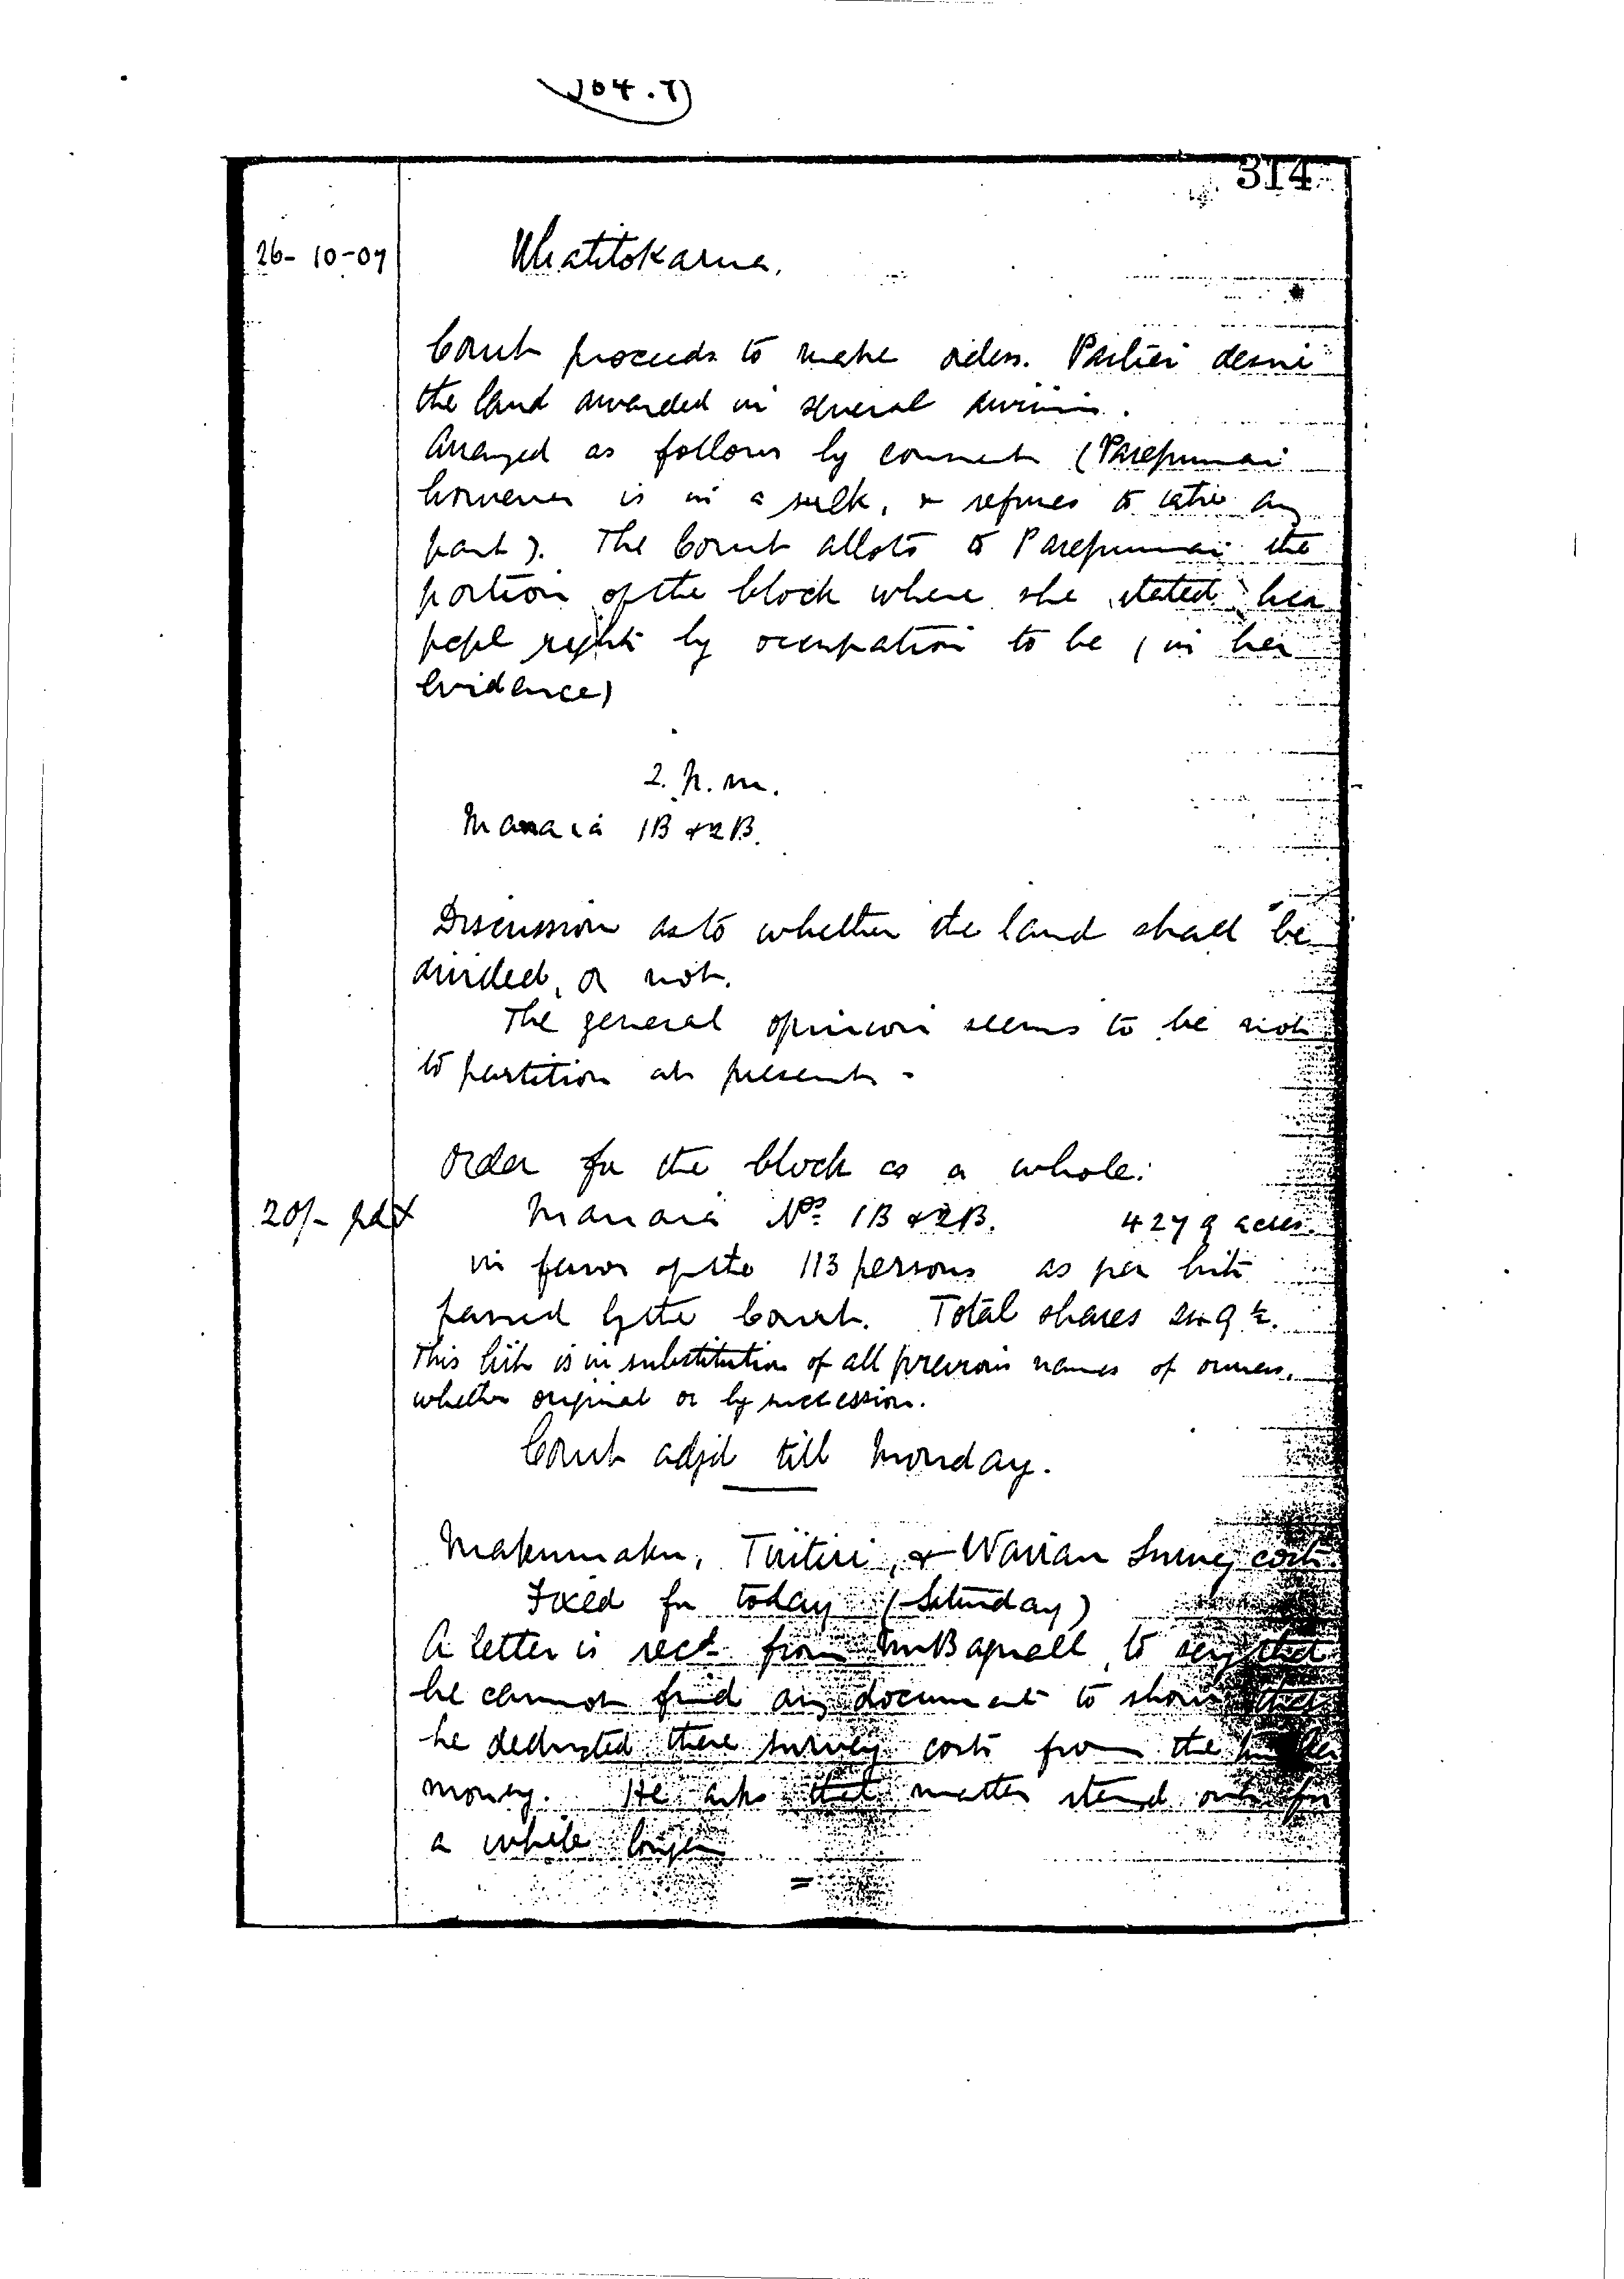 314
26-10-07
Whatitokarua.
Court proceeds to make orders. Parties desire
the land awarded in several divisions.
Arranged as follows by consent (Parepumai
however is in a sulk, & refuses to take any
part). The Court allots to Parepumai the
portion of the block where she stated her
pepl rights by occupation to be (in her
evidence)
2. p.m.
Manaia 1B & 2B.
Discussion as to whether the land shall be
divided, or not.
The general opinion seems to be not
to partition at present.
Order for the block as a whole:
20/- pd X Manaia Nos. 1B & 2B. 4279 acres.
in favor of the 113 persons as per list
passed by the Court. Total shares
This list is in substitution of all previous names of owners,
whether original or by succession.
Court adjd till Monday.
Makumaku, Tuitiri, & Waiau Survey costs.
Fixed for today (Saturday)
A letter is recd from Mr Bagnall to say that
he cannot find any document to show that
he deducted these survey costs from the
money. He asks that matter stand over for
a while longer